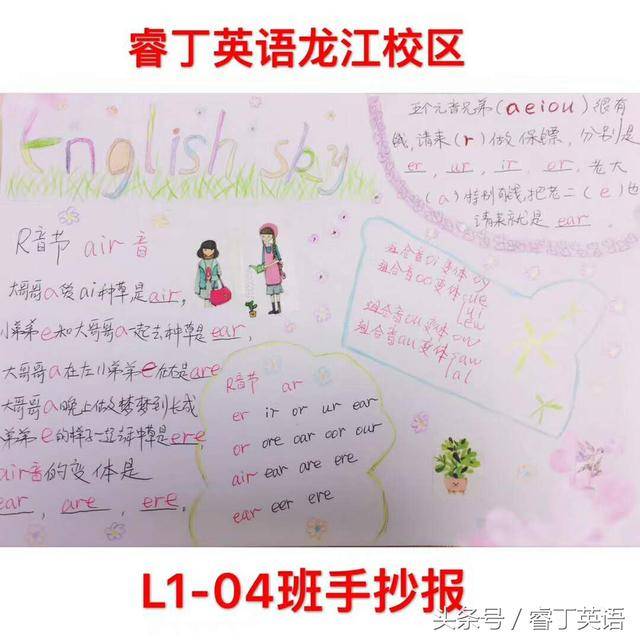 睿丁英语龙江校区
English sky
五个元音兄弟(aeiou)很有
钱,请来(r)做保镖,分别是
er, ur, ir, or, 老大
(a)特别有钱,把老二(e)也
请来就是 ear.
R音节 air 音
大哥哥a爱ai种草是air,
小弟弟e和大哥哥a一起去种草是ear,
大哥哥a在左小弟弟e在右是are
大哥哥a晚上做梦梦到长成
弟弟e的样子一起种草是ere,
air音的变体是
ear, are, ere.
组合音oi变体oy
组合音oo变体ue
ui
ew
组合音ou变体ow
组合音au变体aw
al
R音节 ar
er ir or ur ear
or ore oar oor our
air ear are ere
ear eer ere
L1-04班手抄报
头条号 / 睿丁英语